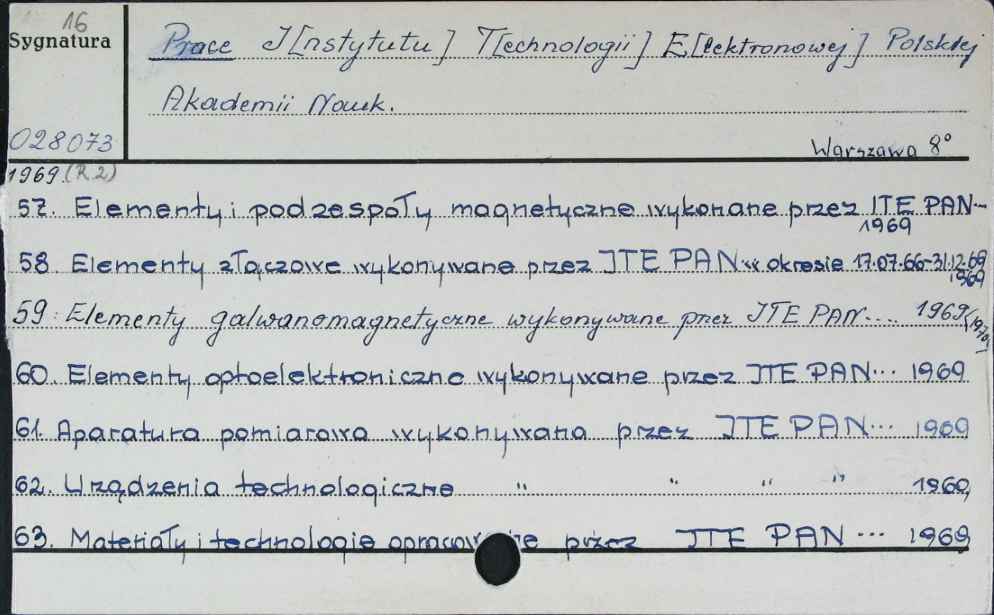 16
Sygnatura
Prace I[nstytutu] T[echnologii] E[lektronowej] Polskiej
Akademii Nauk.
028073
Warszawa 8°
1969 (R.2)
57. Elementy i podzespoły magnetyczne wykonane przez ITE PAN...
1969
58 Elementy złączowe wykonywane przez ITE PAN w okresie 17.07.66-31.12.69
1969
59. Elementy galwanomagnetyczne wykonywane przez ITE PAN.... 1969 (1970)
60. Elementy optoelektroniczne wykonywane przez ITE PAN... 1969
61. Aparatura pomiarowa wykonywana przez ITE PAN... 1969
62. Urządzenia technologiczne " " " " 1969
63. Materiały i technologie przez ITE PAN ... 1969